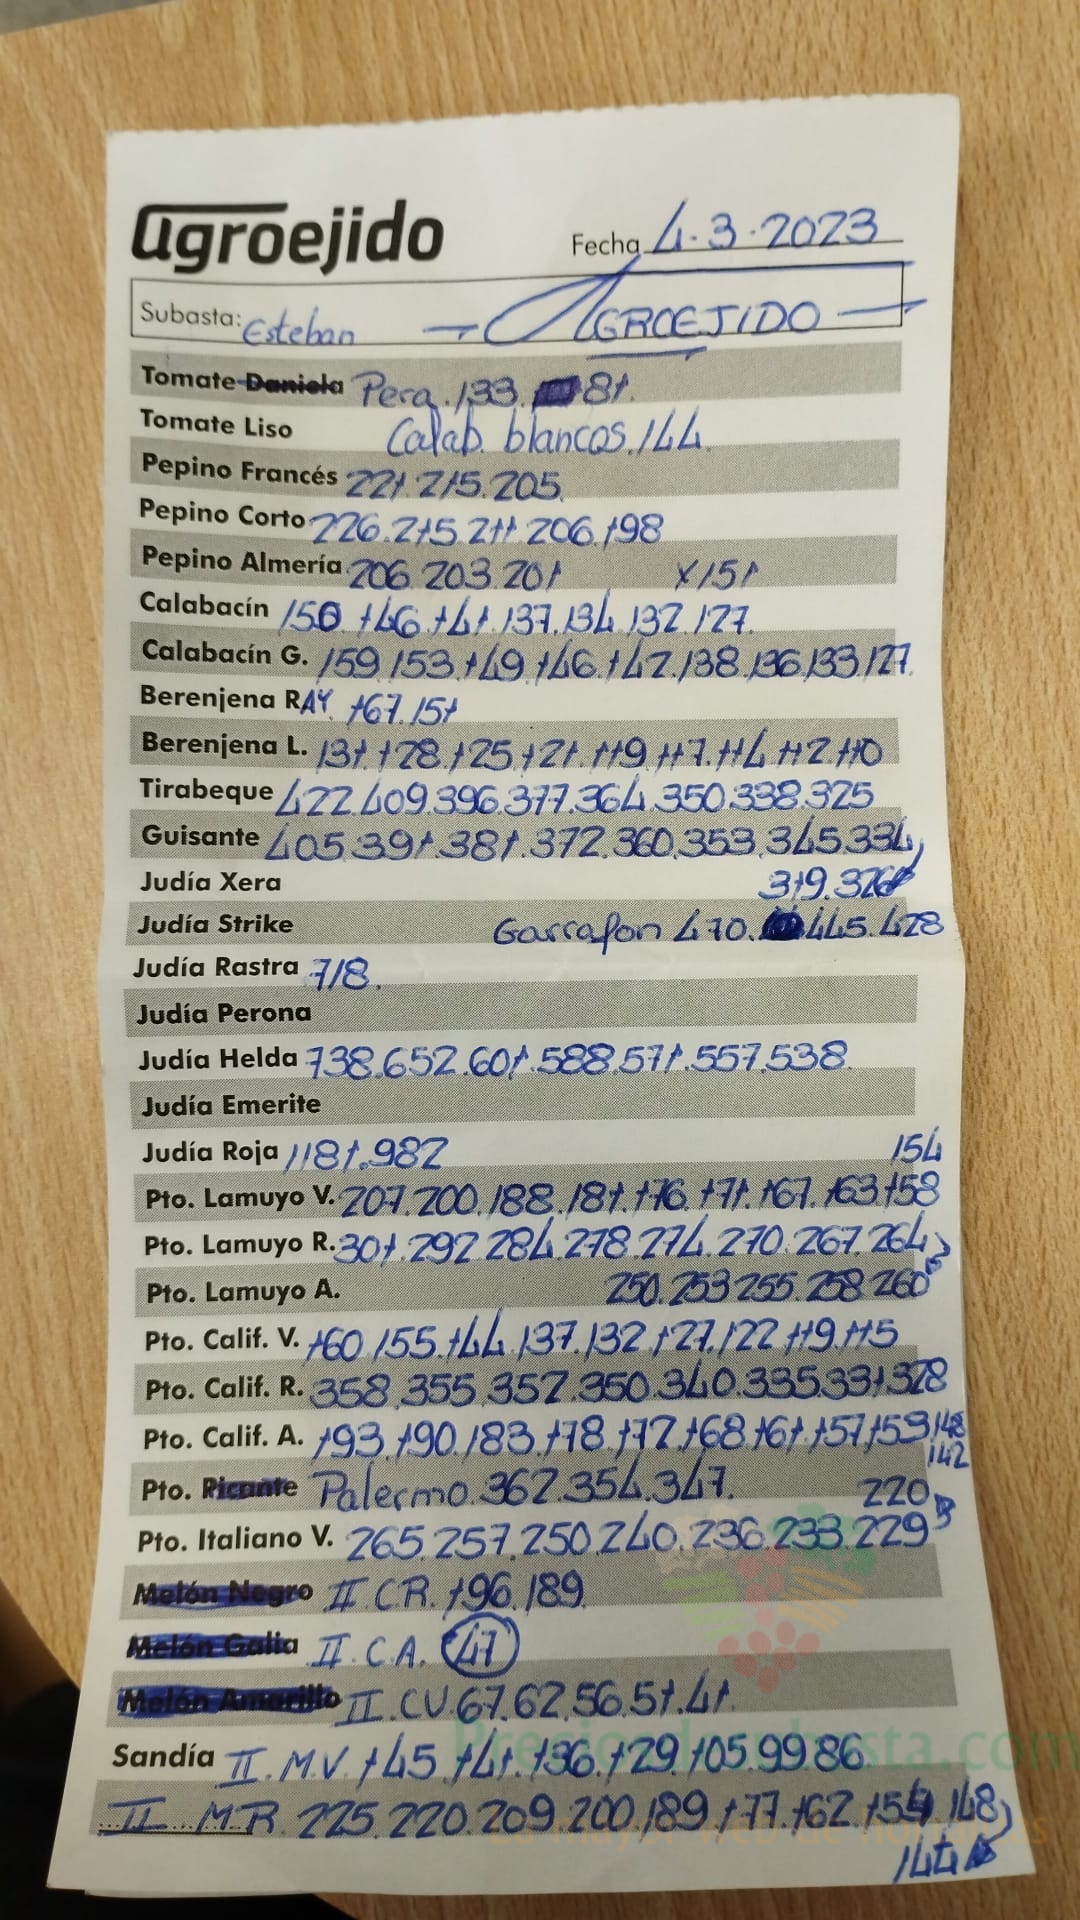 agroejido
Fecha 4.3.2023
Subasta: Esteban → AGROEJIDO
Tomate Daniela Pera. 133. 81.
Tomate Liso Calab. blancos. 144.
Pepino Francés 221. 215. 205.
Pepino Corto 226. 215. 211. 206. 198
Pepino Almería 206. 203. 201 X 151
Calabacín 150. 146. 141. 137. 134. 132. 127.
Calabacín G. 159. 153. 149. 146. 142. 138. 136. 133. 127.
Berenjena RAY. 167. 151
Berenjena L. 131. 128. 125. 121. 119. 117. 114. 112. 110
Tirabeque 422. 409. 396. 377. 364. 350. 338. 325
Guisante 405. 391. 381. 372. 360. 353. 345. 334
Judía Xera 319. 326
Judía Strike Garrafon 470. 445. 428
Judía Rastra 718.
Judía Perona
Judía Helda 738. 652. 601. 588. 571. 557. 538
Judía Emerite
Judía Roja 1181. 982 154
Pto. Lamuyo V. 207. 200. 188. 181. 176. 171. 167. 163. 158
Pto. Lamuyo R. 301. 292. 284. 278. 274. 270. 267. 264
Pto. Lamuyo A. 250. 253. 255. 258. 260
Pto. Calif. V. 160. 155. 144. 137. 132. 127. 122. 119. 115
Pto. Calif. R. 358. 355. 357. 350. 340. 335. 331. 328
Pto. Calif. A. 193. 190. 183. 178. 172. 168. 161. 157. 153. 148
142
Pto. Picante Palermo. 362. 354. 347. 220
Pto. Italiano V. 265. 257. 250. 240. 236. 233. 229
Melón Negro II. CR. 196. 189.
Melón Galia II. C.A. 147
Melón Amarillo II. CV. 67. 62. 56. 51. 41.
Preciosdesubasta.com
Sandía II. M.V. 145. 141. 136. 129. 105. 99. 86
II. MR. 225. 220. 209. 200. 189. 177. 162. 154. 148
La mayor web de
144